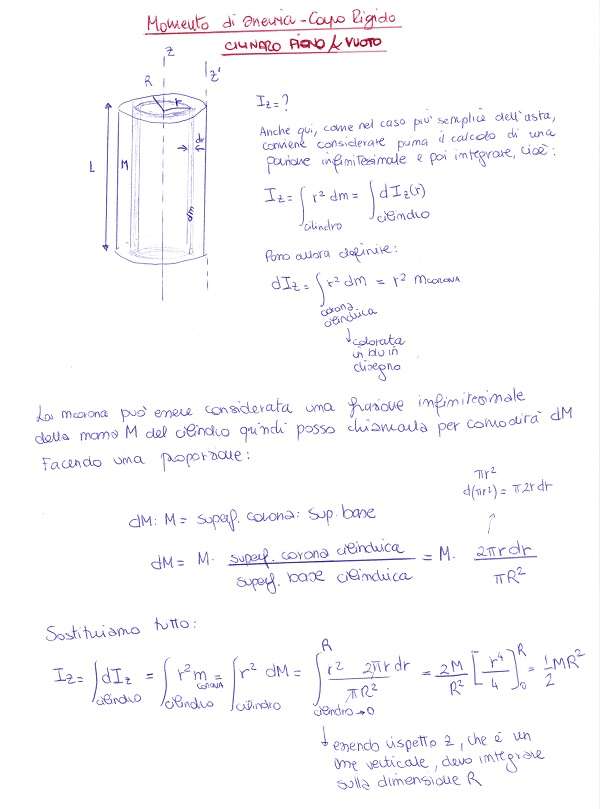 Momento di Inerzia - Corpo Rigido
CILINDRO PIENO & VUOTO
z
z'
R
r
dr
L
M
Iz = ?
Anche qui, come nel caso più semplice dell'asta,
conviene considerare prima il calcolo di una
porzione infinitesimale e poi integrare, cioè:
Iz = ∫cilindro r² dm = ∫cilindro dIz(r)
Posso allora definire:
dIz = ∫corona cilindrica r² dm = r² mCORONA
↓ colorata
in blu in
disegno
La mcorona può essere considerata una frazione infinitesimale
della massa M del cilindro quindi posso chiamarla per comodità dM
Facendo una proporzione:
πr²
d(πr²) = π2rdr
dM : M = superf. corona : sup. base
dM = M · superf. corona cilindrica / superf. base cilindrica = M · 2πrdr / πR²
Sostituiamo tutto:
Iz = ∫cilindro dIz = ∫cilindro r² mcorona = ∫cilindro r² dM = ∫cilindro→0 R r² 2πrdr / πR² = 2M/R² [r⁴/4]0 R = 1/2 MR²
↓ essendo rispetto z, che è un
asse verticale, devo integrare
sulla dimensione R